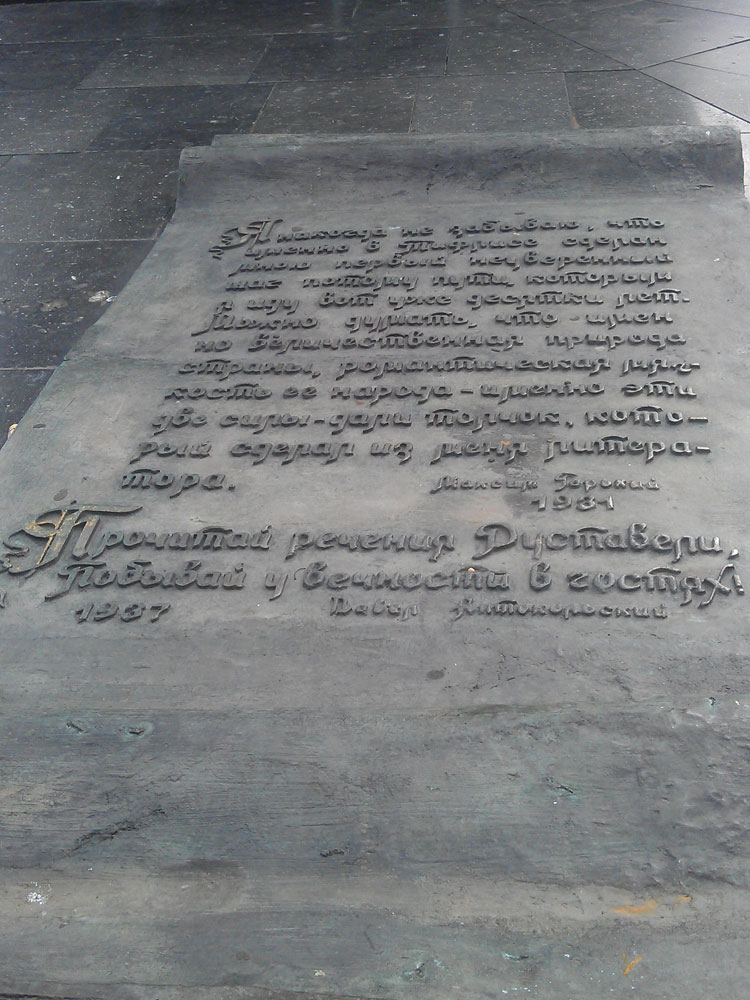 Я никогда не забываю, что
именно в Тифлисе сделан
мною первый неуверенный
шаг потому пути, которым
я иду вот уже десятки лет.
Можно думать, что - имен
но величественная природа
страны, романтическая мяг-
кость ее народа - именно эти
две силы - дали толчок, кото-
рый сделал из меня литера-
тора.
Максим Горький
1931
Прочитай речения Руставели,
Побывай у вечности в гостях!
1937 Павел Антокольский